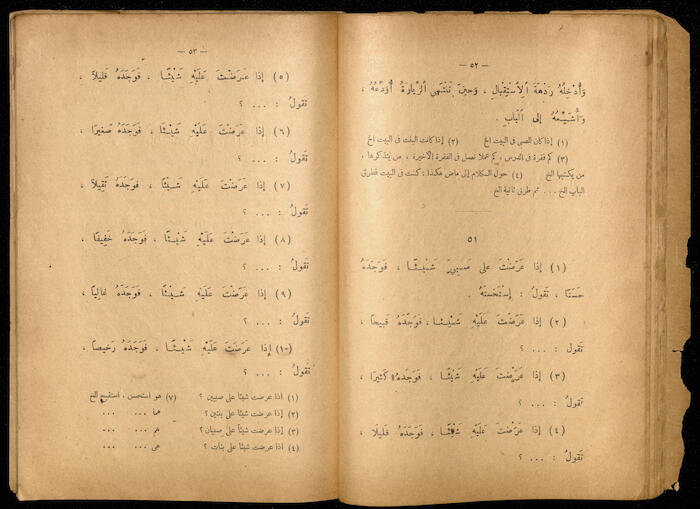 — ٥٢ —
وَأُدْخِلُهُ رَدْهَةَ الِاسْتِقْبَالِ ، وَحِينَ تَنْتَهِي الزِّيَارَةُ أُوَدِّعُهُ ،
وَأُشَيِّعُهُ إِلَى الْبَابِ .
(١) إذا كان الصبى فى البيت الخ (٢) إذا كانت البنت فى البيت الخ
(٣) كم فقرة فى الدرس ، كم عملا نعمل فى الفقرة الأخيرة ، من يتذكرها ،
من يكتبها الخ (٤) حول الكلام إلى ماض هكذا : كنت فى البيت فطرق
الباب الخ ... ثم طرق ثانية الخ .
٥١
(١) إِذَا عَرَضْتَ عَلَى صَبِىٍّ شَيْئًا ، فَوَجَدَهُ
حَسَنًا ، تَقُولُ : إِسْتَحْسَنَهُ .
(٢) إِذَا عَرَضْتَ عَلَيْهِ شَيْئًا ، فَوَجَدَهُ قَبِيحًا ،
تَقُولُ : ... ؟
(٣) إِذَا عَرَضْتَ عَلَيْهِ شَيْئًا ، فَوَجَدَهُ كَثِيرًا ،
تَقُولُ : ... ؟
(٤) إِذَا عَرَضْتَ عَلَيْهِ شَيْئًا ، فَوَجَدَهُ قَلِيلًا ،
تَقُولُ : ... ؟
— ٥٣ —
(٥) إِذَا عَرَضْتَ عَلَيْهِ شَيْئًا ، فَوَجَدَهُ قَلِيلًا ،
تَقُولُ : ... ؟
(٦) إِذَا عَرَضْتَ عَلَيْهِ شَيْئًا ، فَوَجَدَهُ صَغِيرًا ،
تَقُولُ : ... ؟
(٧) إِذَا عَرَضْتَ عَلَيْهِ شَيْئًا ، فَوَجَدَهُ ثَقِيلًا ،
تَقُولُ : ... ؟
(٨) إِذَا عَرَضْتَ عَلَيْهِ شَيْئًا ، فَوَجَدَهُ خَفِيفًا ،
تَقُولُ : ... ؟
(٩) إِذَا عَرَضْتَ عَلَيْهِ شَيْئًا ، فَوَجَدَهُ غَالِيًا ،
تَقُولُ : ... ؟
(١٠) إِذَا عَرَضْتَ عَلَيْهِ شَيْئًا ، فَوَجَدَهُ رَخِيصًا ،
تَقُولُ : ... ؟
(١) اذا عرضت شيئا على صبيين ؟ (٧) هو استحسن ، استقبح الخ
(٢) إذا عرضت شيئا على بنتين ؟ هما ... ...
(٣) إذا عرضت شيئا على صبيان ؟ هم ... ...
(٤) اذا عرضت شيئا على بنات ؟ هى ... ...